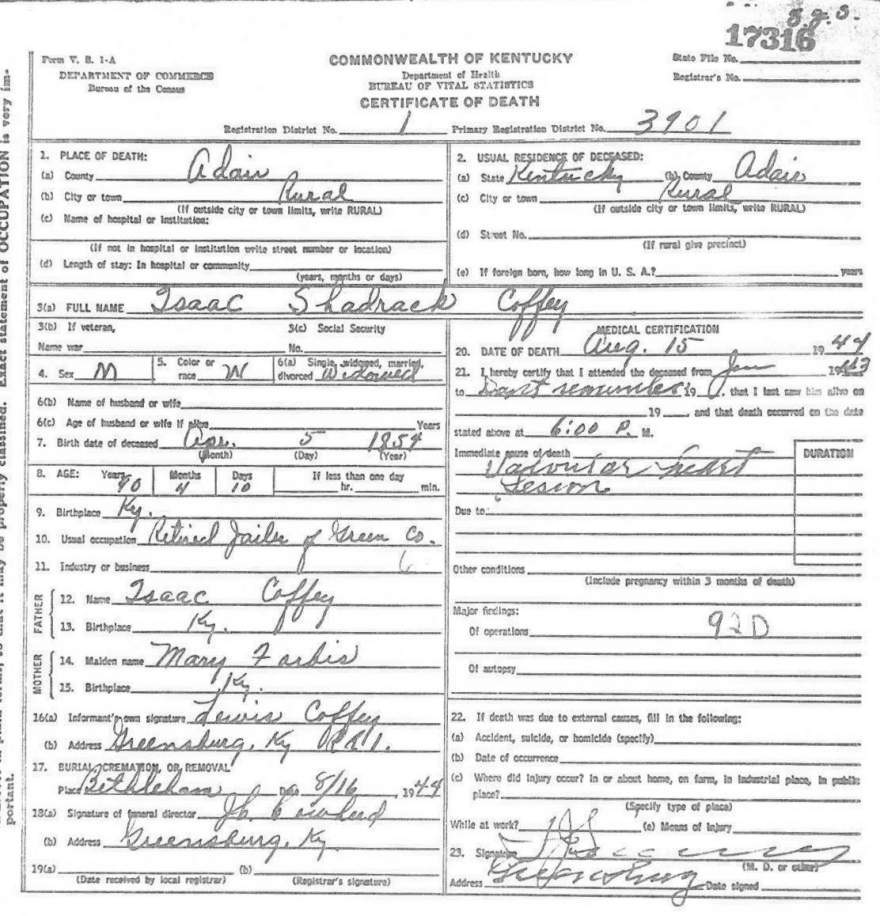 17316
Form V. S. 1-A
DEPARTMENT OF COMMERCE
Bureau of the Census
COMMONWEALTH OF KENTUCKY
Department of Health
BUREAU OF VITAL STATISTICS
CERTIFICATE OF DEATH
State File No.
Registrar's No.
Registration District No. 1 Primary Registration District No. 3901
1. PLACE OF DEATH:
(a) County Adair
(b) City or town Rural
(If outside city or town limits, write RURAL)
(c) Name of hospital or institution:
(If not in hospital or institution write street number or location)
(d) Length of stay: In hospital or community
(years, months or days)
2. USUAL RESIDENCE OF DECEASED:
(a) State Kentucky (b) County Adair
(c) City or town Rural
(If outside city or town limits, write RURAL)
(d) Street No.
(If rural give precinct)
(e) If foreign born, how long in U. S. A.? years
3(a) FULL NAME Isaac Shadrack Coffey
3(b) If veteran,
Name war
3(c) Social Security
No.
4. Sex M
5. Color or
race W
6(a) Single, widowed, married,
divorced Widowed
6(b) Name of husband or wife
6(c) Age of husband or wife if alive Years
7. Birth date of deceased Apr. 5 1854
(Month) (Day) (Year)
8. AGE: Years 90 Months 4 Days 10 If less than one day
hr. min.
9. Birthplace Ky.
10. Usual occupation Retired Jailer of Green Co.
11. Industry or business
FATHER
12. Name Isaac Coffey
13. Birthplace Ky.
MOTHER
14. Maiden name Mary Farbis
15. Birthplace Ky.
16(a) Informant's own signature Lewis Coffey
(b) Address Greensburg, Ky R R 1.
17. BURIAL, CREMATION, OR REMOVAL
Place Bethlehem Date 8/16, 1944
18(a) Signature of funeral director
(b) Address Greensburg, Ky
19(a) (b)
(Date received by local registrar) (Registrar's signature)
MEDICAL CERTIFICATION
20. DATE OF DEATH Aug. 15 1944
21. I hereby certify that I attended the deceased from Jan 1943
to Dont remember 19 , that I last saw him alive on
19 , and that death occurred on the date
stated above at 6:00 P. M.
Immediate cause of death DURATION
Valvular Heart
Lesion
Due to
Other conditions
(Include pregnancy within 3 months of death)
Major findings:
Of operations 92D
Of autopsy
22. If death was due to external causes, fill in the following:
(a) Accident, suicide, or homicide (specify)
(b) Date of occurrence
(c) Where did injury occur? In or about home, on farm, in industrial place, in public
place?
(Specify type of place)
While at work? (e) Means of injury
23. Signature
(M. D. or other)
Address Greensburg Date signed
Exact statement of OCCUPATION is very im-
so that it may be properly classified.
portant.